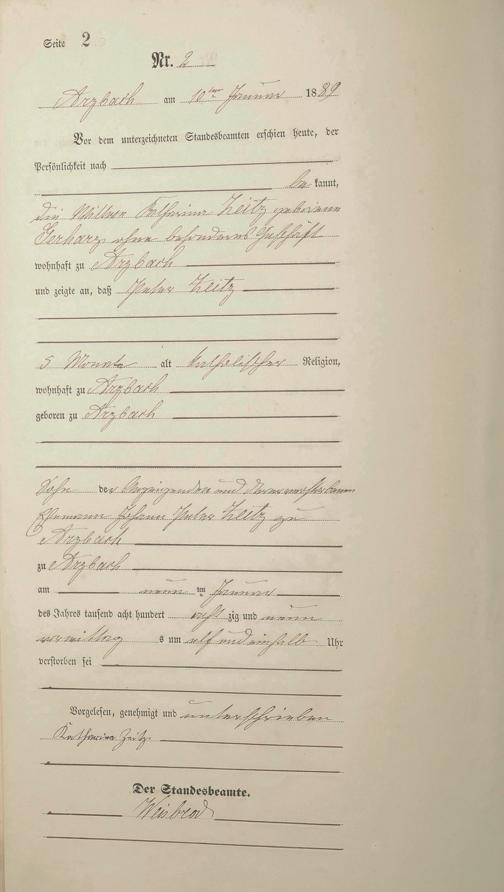 Seite 2
Nr. 2
Arzbach am 10ten Januar 1889
Vor dem unterzeichneten Standesbeamten erschien heute, der
Persönlichkeit nach
be kannt,
die Wittwe Katharina Zeitz geborene
Gerharz ohne besonderes Geschäft
wohnhaft zu Arzbach
und zeigte an, daß Peter Zeitz
5 Monate alt katholischer Religion,
wohnhaft zu Arzbach
geboren zu Arzbach
Sohn der Anzeigenden und ihres verstorbenen
Ehemann Johann Peter Zeitz zu
Arzbach
zu Arzbach
am neun ten Januar
des Jahres tausend acht hundert acht zig und neun
vormittag s um elf und einhalb Uhr
verstorben sei
Vorgelesen, genehmigt und unterschrieben
Katharina Zeitz
Der Standesbeamte.
Weisbrod